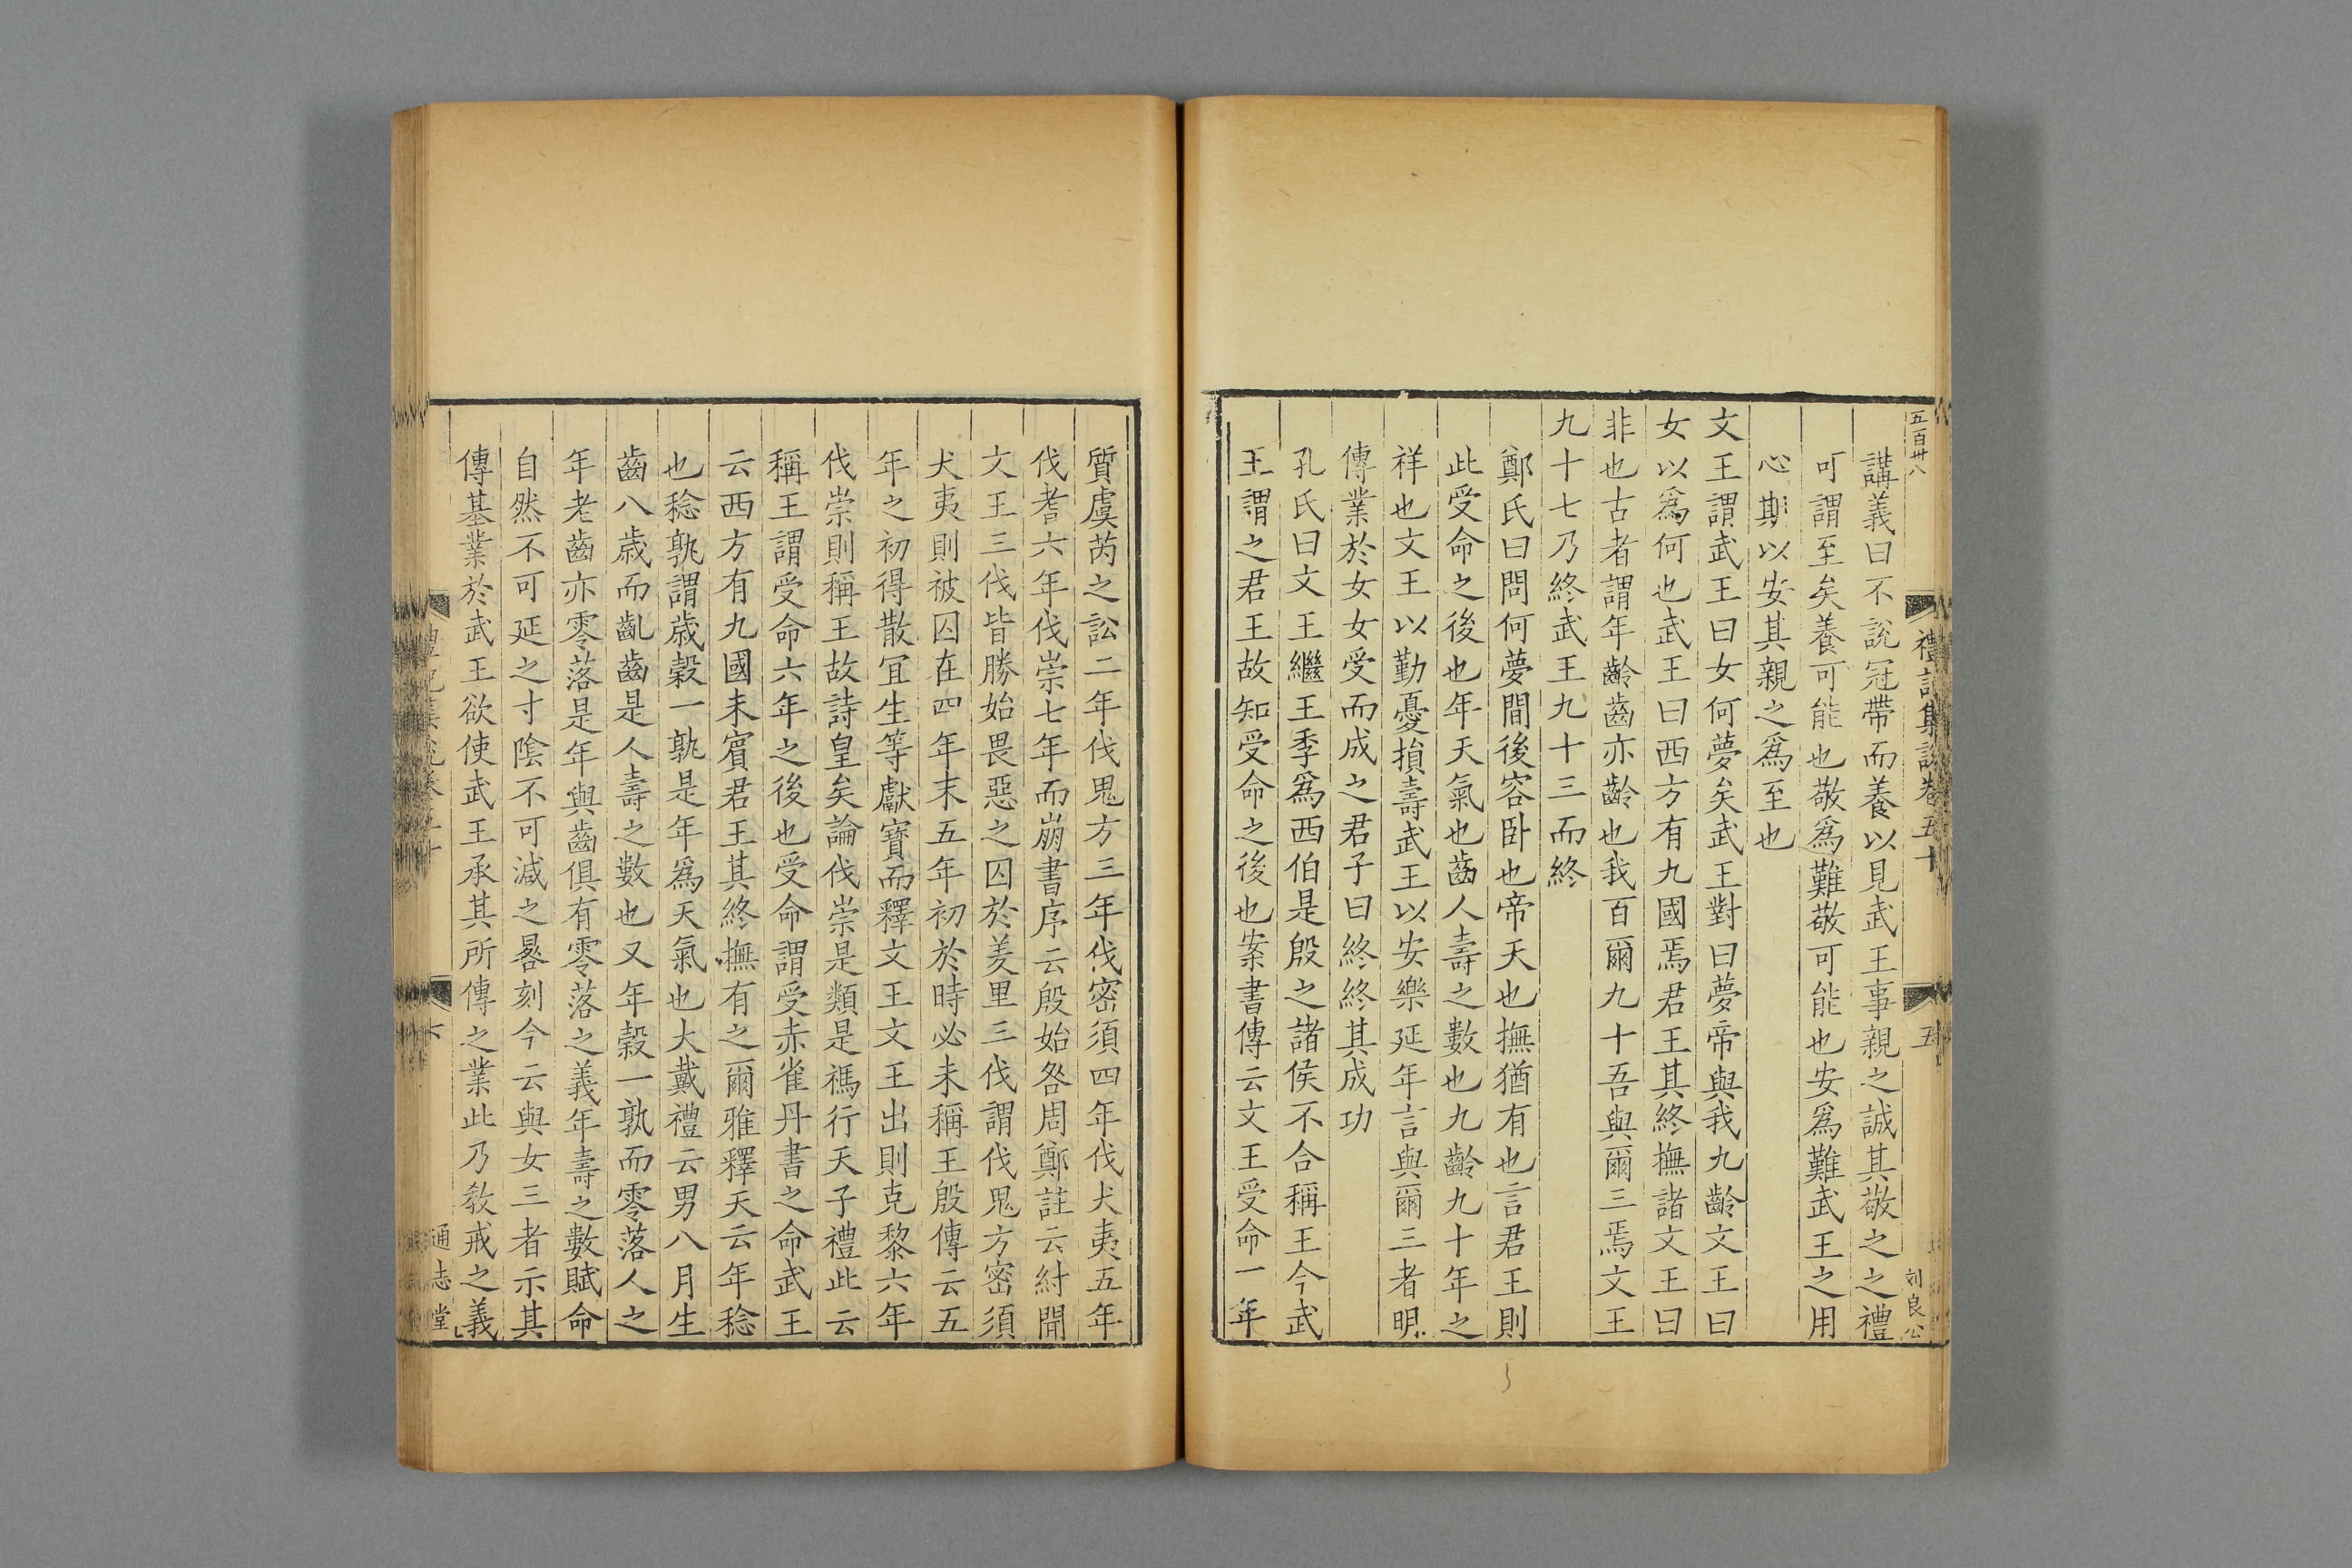 五百卅八
禮記集說卷五十
五
刘良公
講義曰不說冠帶而養以見武王事親之誠其敬之之禮
可謂至矣養可能也敬爲難敬可能也安爲難武王之用
心期以安其親之爲至也
文王謂武王曰女何夢矣武王對曰夢帝與我九齡文王曰
女以爲何也武王曰西方有九國焉君王其終撫諸文王曰
非也古者謂年齡齒亦齡也我百爾九十吾與爾三焉文王
九十七乃終武王九十三而終
鄭氏曰問何夢間後容卧也帝天也撫猶有也言君王則
此受命之後也年天氣也齒人壽之數也九齡九十年之
祥也文王以勤憂損壽武王以安樂延年言與爾三者明
傳業於女女受而成之君子曰終終其成功
孔氏曰文王繼王季爲西伯是殷之諸侯不合稱王今武
王謂之君王故知受命之後也案書傳云文王受命一年
質虞芮之訟二年伐鬼方三年伐密須四年伐犬夷五年
伐耆六年伐崇七年而崩書序云殷始咎周鄭註云紂聞
文王三伐皆勝始畏惡之囚於羑里三伐謂伐鬼方密須
犬夷則被囚在四年末五年初於時必未稱王殷傳云五
年之初得散宜生等獻寶而釋文王文王出則克黎六年
伐崇則稱王故詩皇矣論伐崇是類是禡行天子禮此云
稱王謂受命六年之後也受命謂受赤雀丹書之命武王
云西方有九國未賓君王其終撫有之爾雅釋天云年稔
也稔孰謂歲穀一孰是年爲天氣也大戴禮云男八月生
齒八歲而齓齒是人壽之數也又年穀一孰而零落人之
年老齒亦零落是年與齒俱有零落之義年壽之數賦命
自然不可延之寸陰不可減之晷刻今云與女三者示其
傳基業於武王欲使武王承其所傳之業此乃教戒之義
禮記集說卷五十
六
通志堂